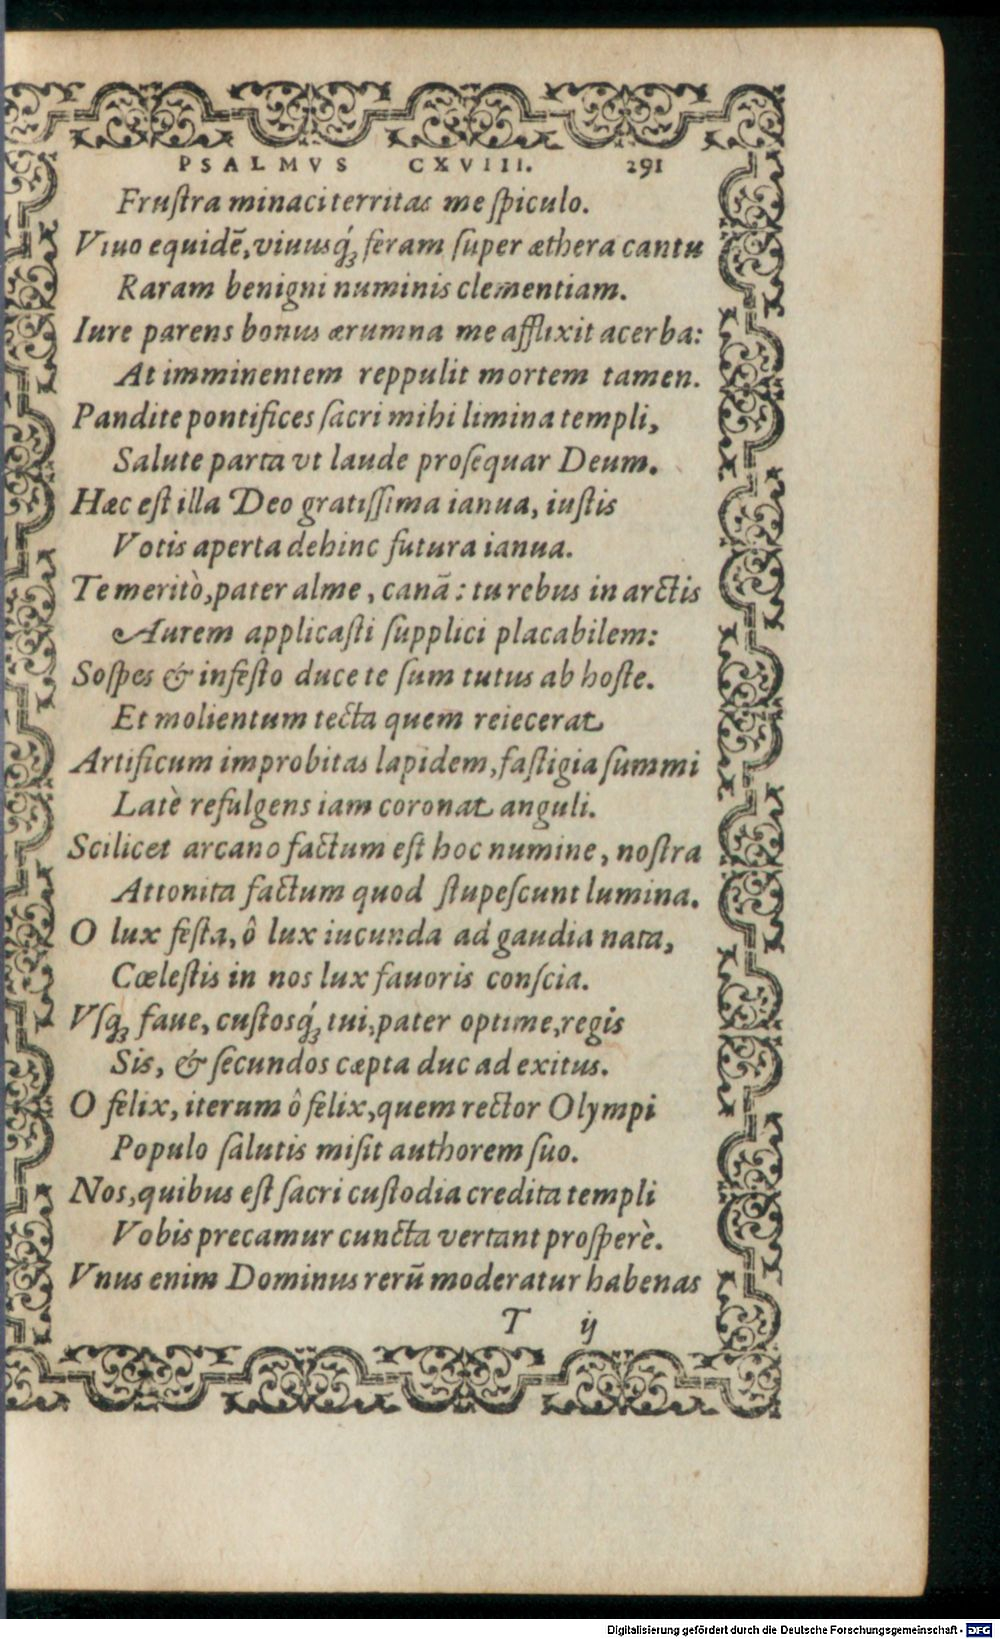 PSALMVS CXVIII. 291
Fruſtra minaci territas me ſpiculo.
Viuo equidẽ, viuusq́ꝫ feram ſuper æthera cantu
Raram benigni numinis clementiam.
Iure parens bonus ærumna me afflixit acerba:
At imminentem reppulit mortem tamen.
Pandite pontifices ſacri mihi limina templi,
Salute parta vt laude proſequar Deum.
Hæc eſt illa Deo gratiſſima ianua, iuſtis
Votis aperta dehinc futura ianua.
Te meritò, pater alme, canã: tu rebus in arctis
Aurem applicaſti ſupplici placabilem:
Soſpes & infeſto duce te ſum tutus ab hoſte.
Et molientum tecta quem reiecerat
Artificum improbitas lapidem, faſtigia ſummi
Latè refulgens iam coronat anguli.
Scilicet arcano factum eſt hoc numine, noſtra
Attonita factum quod ſtupeſcunt lumina.
O lux feſta, ô lux iucunda ad gaudia nata,
Cœleſtis in nos lux fauoris conſcia.
Vſqꝫ faue, cuſtosq́ꝫ tui, pater optime, regis
Sis, & ſecundos cæpta duc ad exitus.
O felix, iterum ô felix, quem rector Olympi
Populo ſalutis miſit authorem ſuo.
Nos, quibus eſt ſacri cuſtodia credita templi
Vobis precamur cuncta vertant proſperè.
Vnus enim Dominus rerũ moderatur habenas
T ij
Digitalisierung gefördert durch die Deutsche Forschungsgemeinschaft - DFG